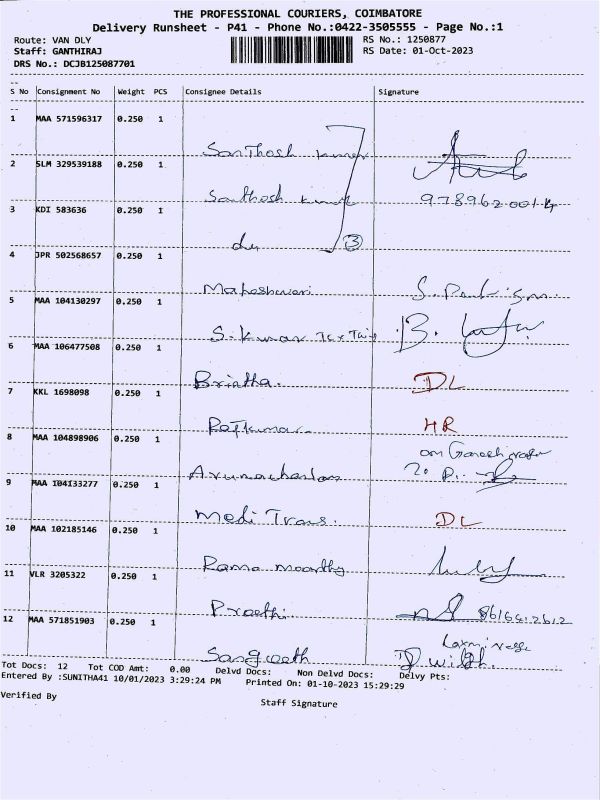 THE PROFESSIONAL COURIERS, COIMBATORE
Delivery Runsheet - P41 - Phone No.:0422-3505555 - Page No.:1
Route: VAN DLY RS No.: 1250877
Staff: GANTHIRAJ RS Date: 01-Oct-2023
DRS No.: DCJB125087701
S No Consignment No Weight PCS Consignee Details Signature
1 MAA 571596317 0.250 1
Santhosh Kumar
2 SLM 329539188 0.250 1
Santhosh Kumar 9789620014
3 KDI 583636 0.250 1
do 3
4 JPR 502568657 0.250 1
Maheshwari
5 MAA 104130297 0.250 1
S. Kumar
6 MAA 106477508 0.250 1
DL
7 KKL 1698098 0.250 1
Rajkumar HR
8 MAA 104898906 0.250 1
om Ganesh
Arunachalam
9 MAA 104133277 0.250 1
Medi Trans. DL
10 MAA 102185146 0.250 1
Rama moorthy
11 VLR 3205322 0.250 1
Preethi
12 MAA 571851903 0.250 1
Laxmi
Sangeeth
Tot Docs: 12 Tot COD Amt: 0.00 Delvd Docs: Non Delvd Docs: Delvy Pts:
Entered By :SUNITHA41 10/01/2023 3:29:24 PM Printed On: 01-10-2023 15:29:29
Verified By
Staff Signature